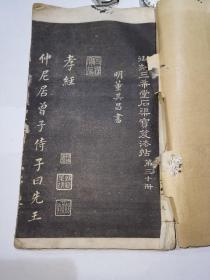 御刻三希堂石渠寶笈法帖第三十冊
明董其昌書
孝經
仲尼居曾子侍子曰先王